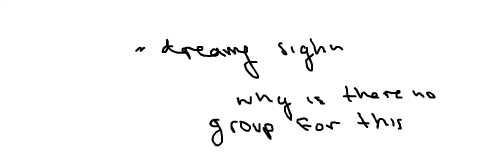 ~ dreamy sighn
why is there no
group for this